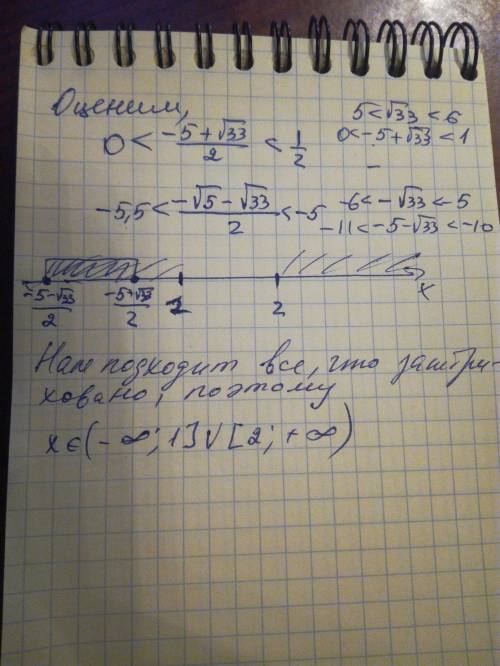 Оценим,
5 < √33 < 6
0 < (-5+√33)/2 < 1/2
0 < -5+√33 < 1
-5,5 < (-√5-√33)/2 < -5
-6 < -√33 < -5
-11 < -5-√33 < -10
(-5-√33)/2 (-5+√33)/2 1 2 x
Нам подходит все, что заштри-
ховано, поэтому
x∈(-∞; 1]∨[2; +∞)